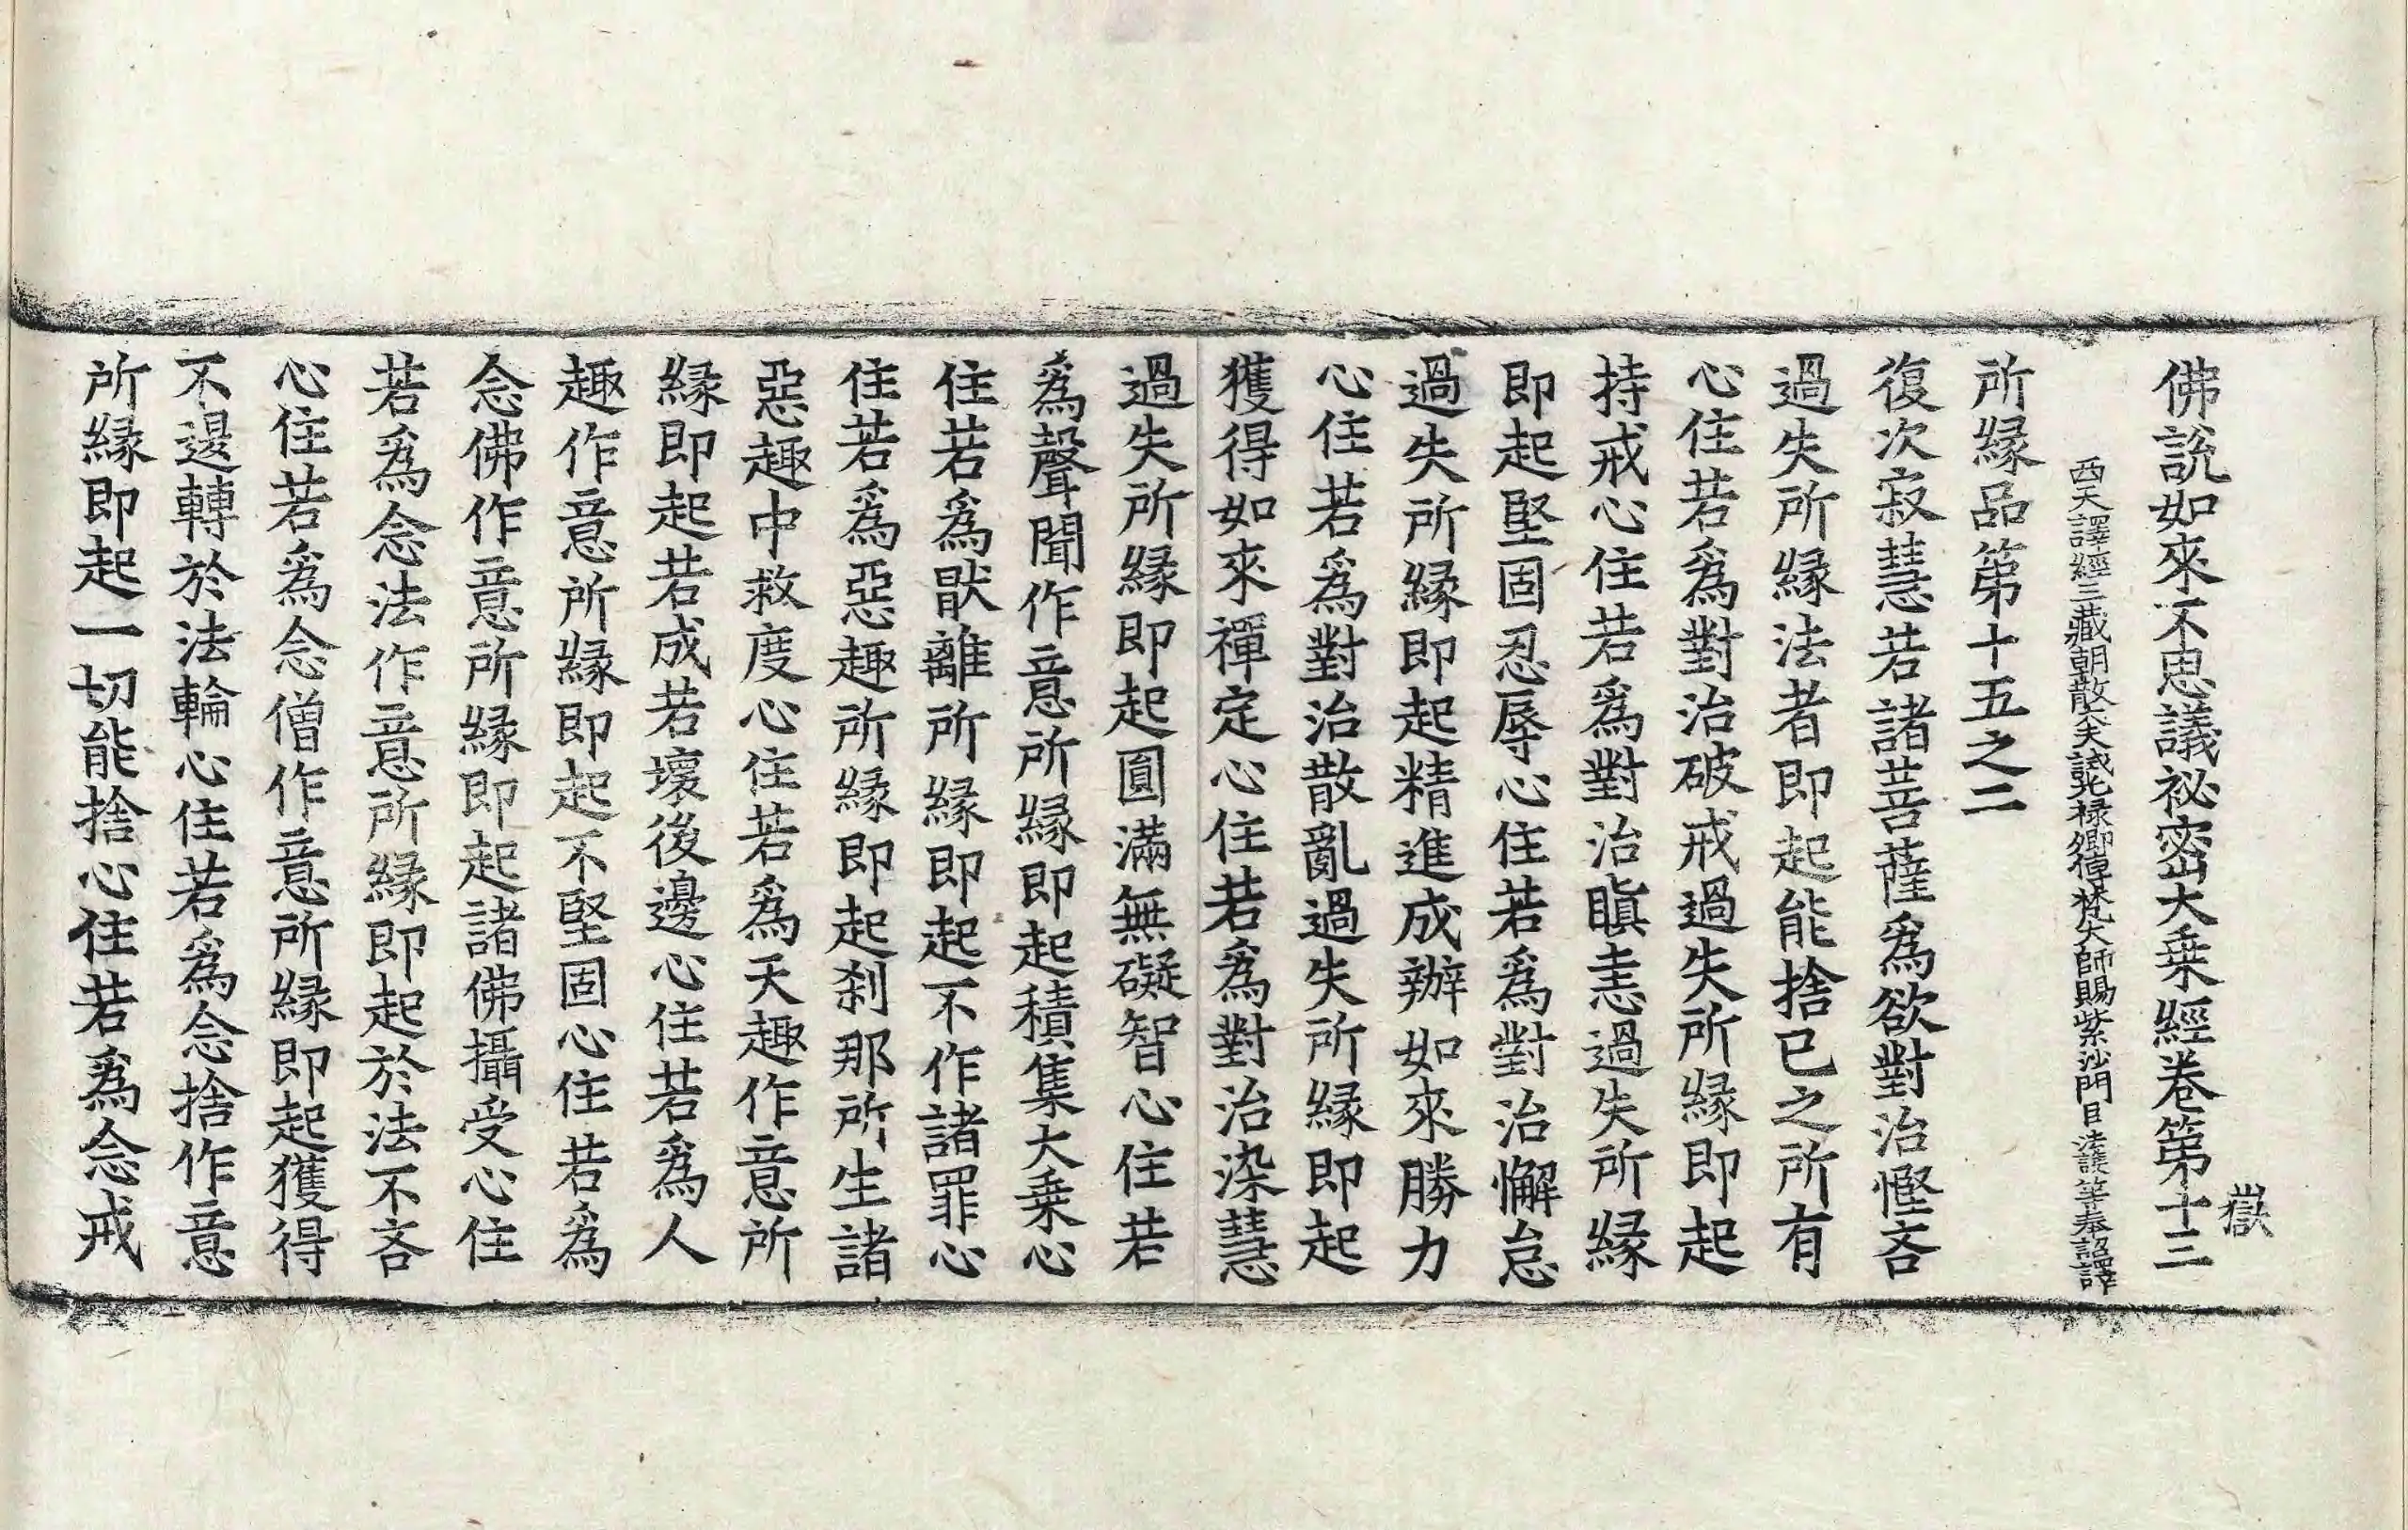 佛說如來不思議祕密大乗經卷第十三
嶽
西天譯經三藏朝散大夫試光祿卿傳梵大師賜紫沙門臣法護等奉詔譯
所緣品第十五之二
復次寂慧若諸菩薩爲欲對治慳吝
過失所緣法者即起能捨已之所有
心住若爲對治破戒過失所緣即起
持戒心住若爲對治瞋恚過失所緣
即起堅固忍辱心住若爲對治懈怠
過失所緣即起精進成辦如來勝力
心住若爲對治散亂過失所緣即起
獲得如來禪定心住若爲對治染慧
過失所緣即起圓滿無礙智心住若
爲聲聞作意所緣即起積集大乗心
住若爲猒離所緣即起不作諸罪心
住若爲惡趣所緣即起刹那所生諸
惡趣中救度心住若爲天趣作意所
緣即起若成若壞後邊心住若爲人
趣作意所緣即起不堅固心住若爲
念佛作意所緣即起諸佛攝受心住
若爲念法作意所緣即起於法不吝
心住若爲念僧作意所緣即起獲得
不退轉於法輪心住若爲念捨作意
所緣即起一切能捨心住若爲念戒